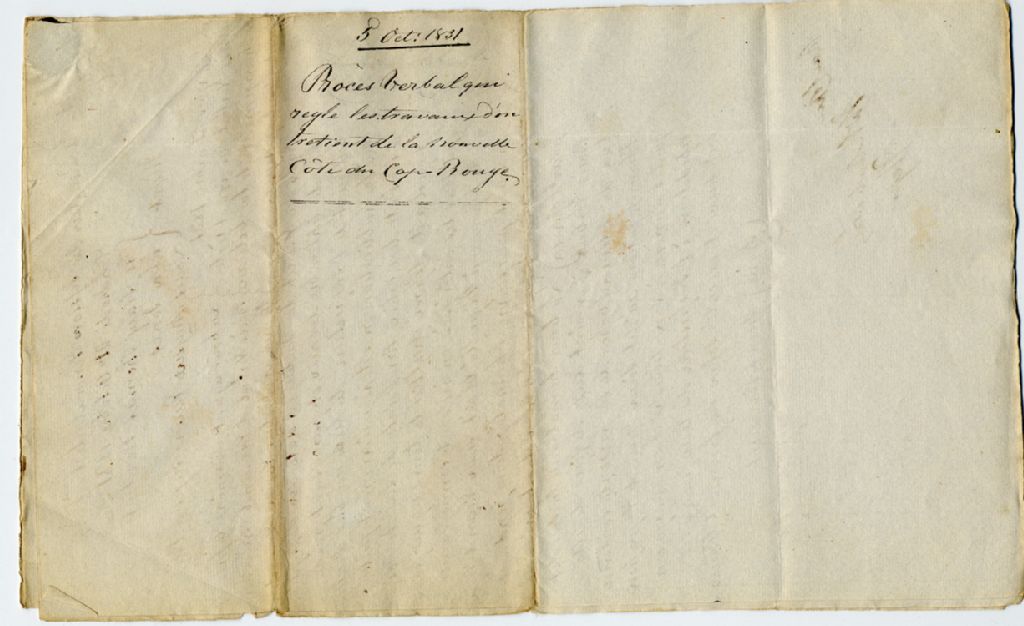 5 Oct: 1831
Procès Verbal qui
regle les travaux d'en
tretient de la nouvelle
Côte du Cap-Rouge,